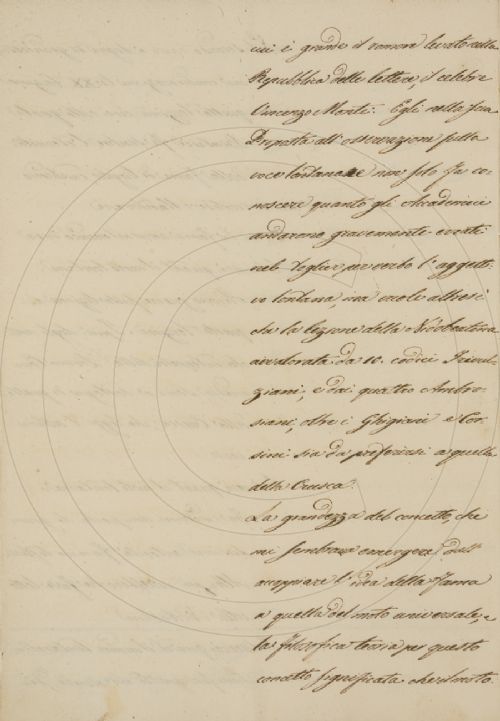 cui è grande il romore levato nella
Repubblica delle lettere, il celebre
Vincenzo Monti. Egli nella sua
Proposta all'osservazione sulla
voce lontana non solo fa co-
noscere quanto gli Accademici
andarono gravemente errati
nel toglier per verbo l'aggetti-
vo lontana, ma vuole altresì
che la lezione della Nidobeatina
avvalorata da 10. codici Trivul-
ziani, e dai quattro Ambro-
siani, oltre i Ghigiani e Cor-
sini sia da preferirsi a quella
della Crusca.
La grandezza del concetto, che
mi sembrava emergere dall'
accoppiare l'idea della Fama
a quella del moto universale, e
la filosofica teoria per questo
concetto significata che il moto